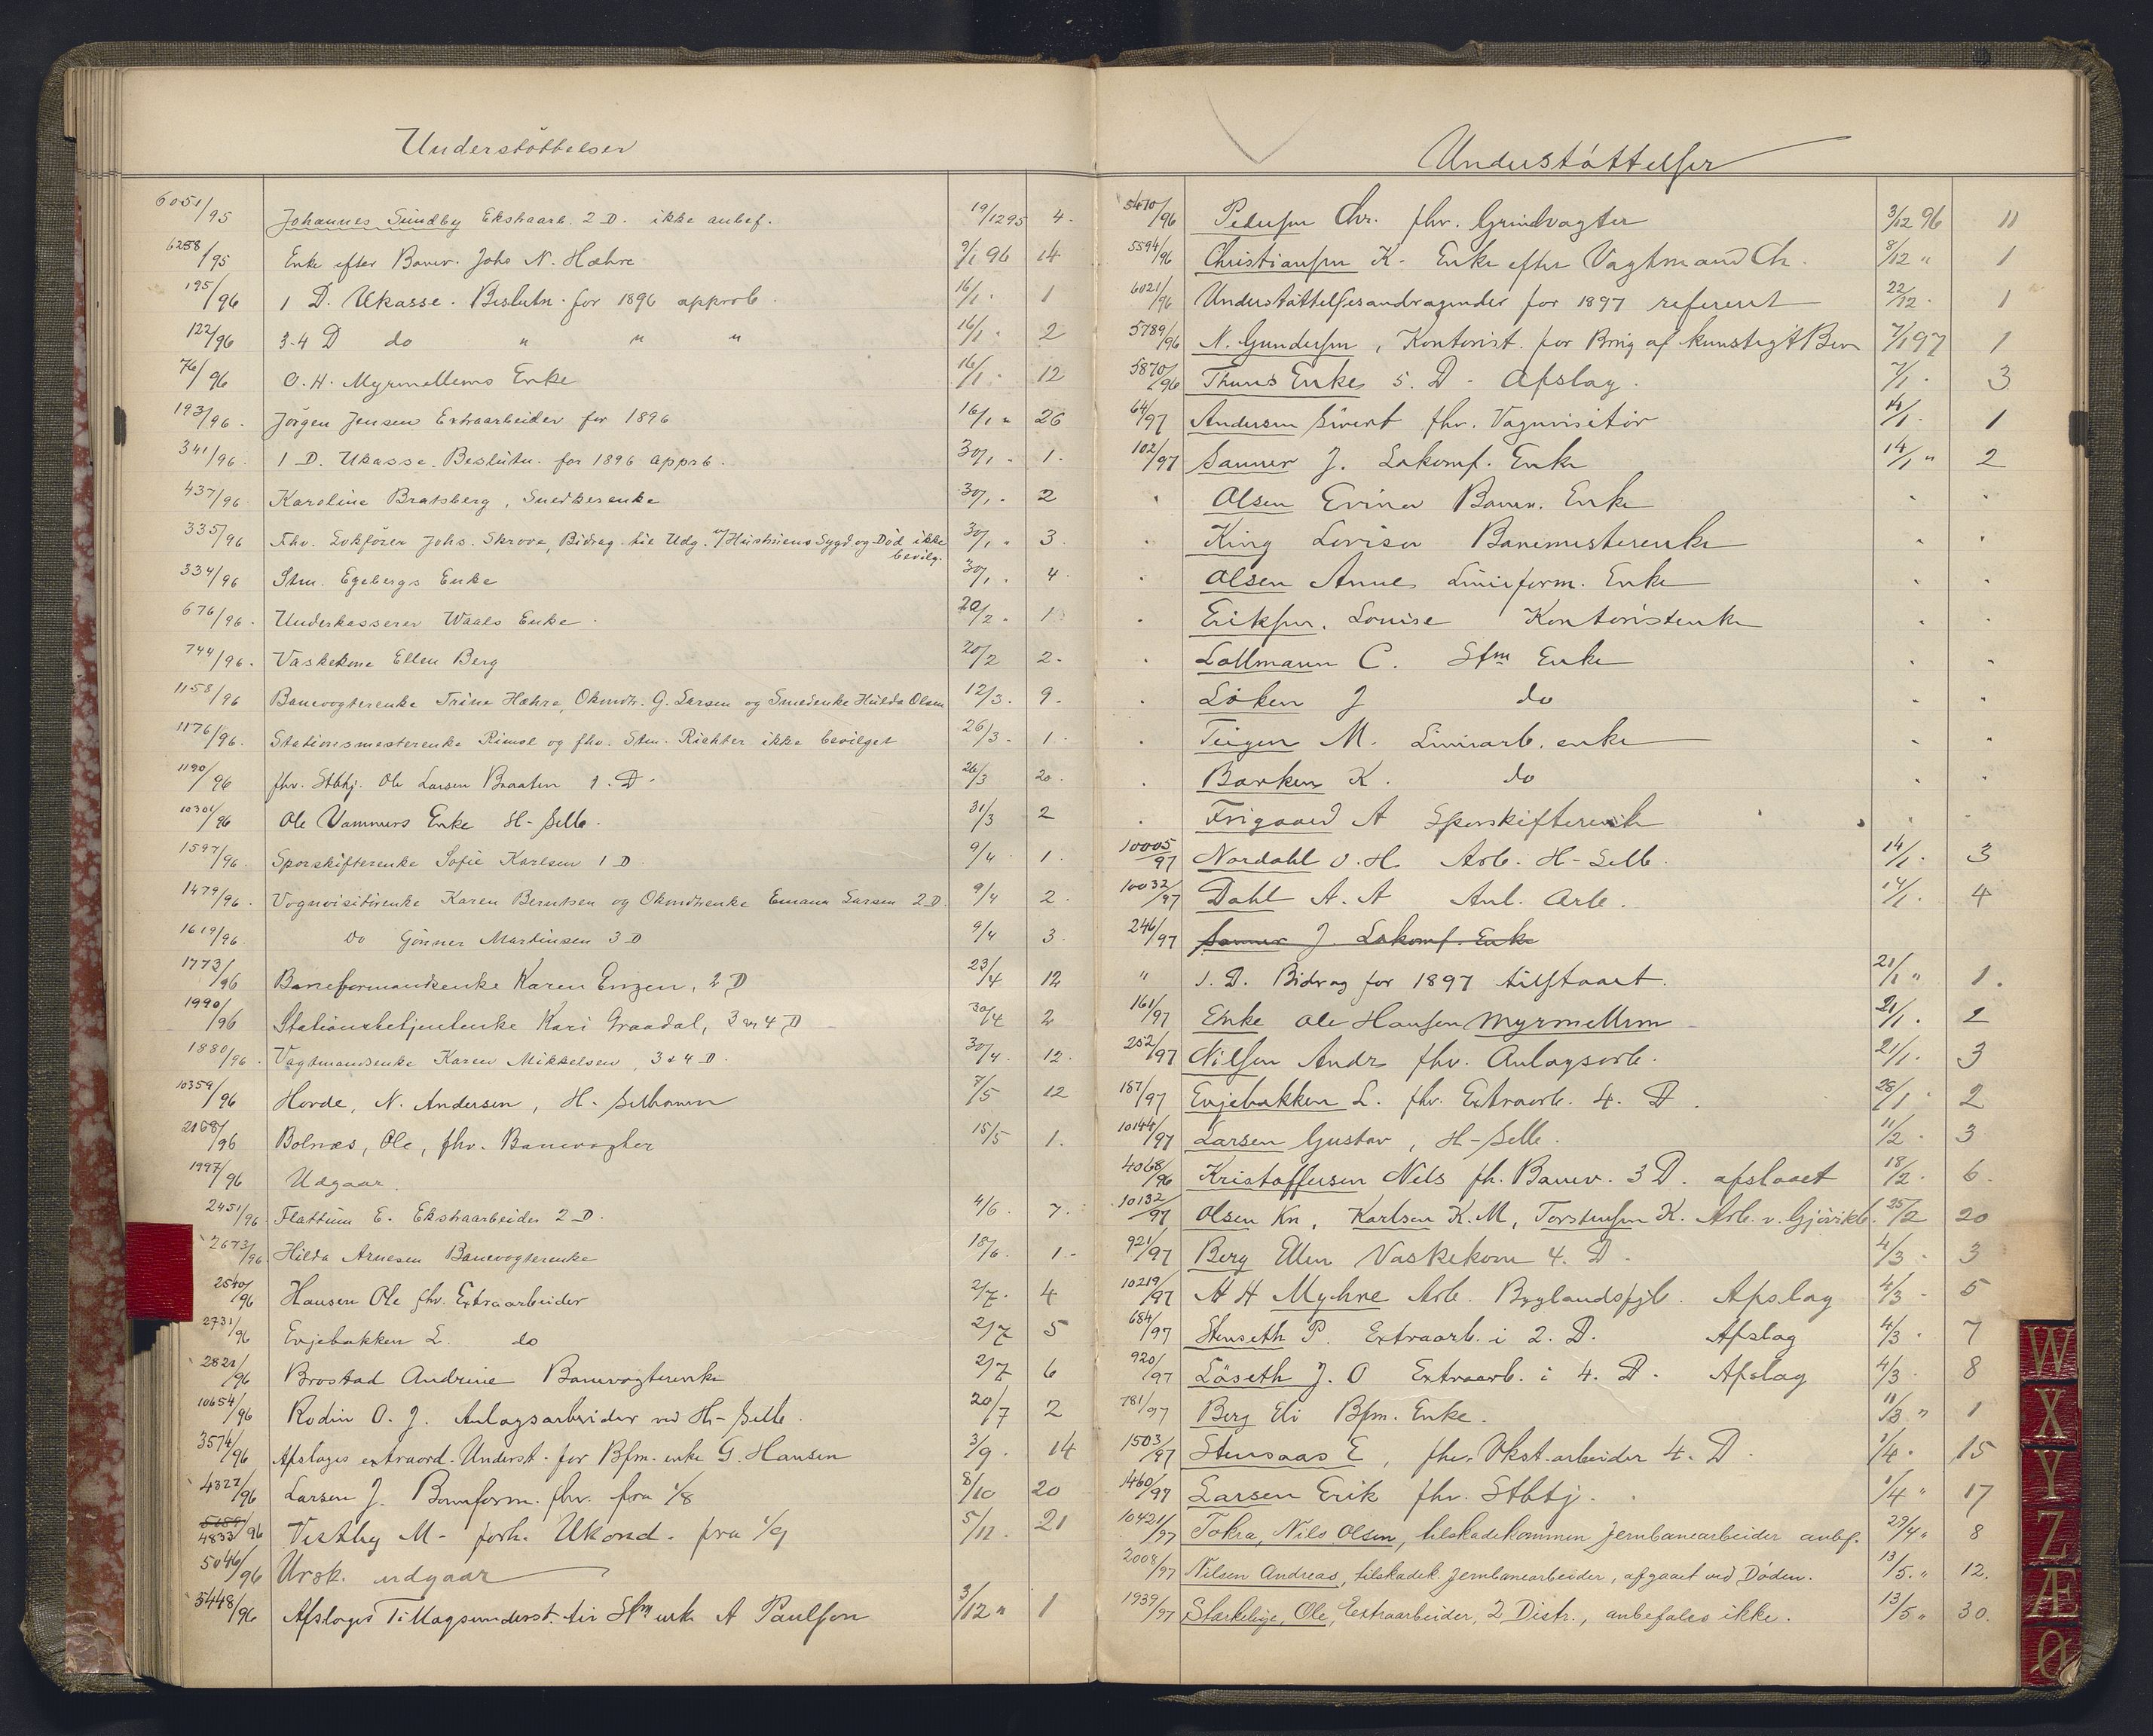 Understöttelser
6051/95 Johannes Sundby Ekstraarb. 2 D. ikke anbef. 19/12 95 4.
6258/95 Enke efter Banev. Johs N. Hæhre 9/1 96 14
195/96 1 D. Ukasse. Beslutn. for 1896 approb. 16/1 . 1
122/96 3-4 D do " " " 16/1 . 2
76/96 O. H. Myrmellems Enke 16/1 . 12
193/96. Jörgen Jensen Extraarbeider for 1896 16/1 " 26
341/96. 1 D. Ukasse. Beslutn. for 1896 apprb. 30/1 . 1.
437/96 Karoline Bratsberg, Snedkerenke 30/1 . 2
335/96 Fhv. Lokförer Johs. Skrove, Bidrag til Udg. v/Hustruens Sygd og Död ikke bevilg. 30/1 . 3
334/96 Stm. Egebergs Enke 30/1 . 4
676/96. Underkasserer Waals Enke 20/2 . 1
744/96. Vaskekone Ellen Berg 20/2 2.
1158/96 Banevogterenke Trine Hæhre, Okondtr. G. Larsen og Smedenke Hulda Olsen 12/3. 9.
1176/96. Stationsmesterenke Rimol og fhv. Stm. Richter ikke bevilget 26/3. 1.
1190/96 fhv. Stbtj. Ole Larsen Braaten 1. D. 26/3 20.
10301/96 Ole Vammers Enke H-Selb. 31/3 2
1597/96. Sporskifterenke Sofie Karlsen 1 D. 9/4 1.
1479/96. Vognvisitörenke Karen Berntsen og Okondtrenke Emana Larsen 2 D. 9/4 2.
1619/96. Do Gunner Martinsen 3 D 9/4 3.
1773/96 Baneformandsenke Karen Engen, 2 D 23/4 12
1990/96 Stationsbetjentenke Kari Graadal, 3 og 4 D 30/4 2
1880/96. Vagtmandsenke Karen Mikkelsen, 3 & 4 D. 30/4. 12.
10359/96 Horde, N. Andersen, H. Selbanen 7/5 12
2168/96 Bolnæs, Ole, fhv. Banevogter 15/5 1.
1997/96 Udgaar.
2451/96 Flattum E. Ekstraarbeider 2 D. 4/6. 7.
2673/96. Hilda Arnesen Banevogterenke 18/6. 1.
2540/96 Hansen Ole fhv. Extraarbeider 2/7. 4
2731/96 Evjebakken L. do 2/7 5
2821/96 Brostad Andrine Banevogterenke 2/7 6
10654/96 Rodin O. J. Anlagsarbeider ved H-Selb. 20/7 2
3574/96 Afslages extraord. Underst. for Bfm. enke G. Hansen 3/9. 14
4327/96 Larsen J. Baneform. fhv. fra 1/8 8/10 20
4833/96 Vestby M. forh. Ukond. fra 1/9 5/11. 21
5046/96 Ursk. udgaar
5448/96 Afslages Tillagsunderst. til Stm enke A Paulsen 3/12 " 1
Understöttelser
5470/96 Pedersen Chr. fhv. Grindvagter 3/12 96 11
5594/96 Christiansen K. Enke efter Vagtmand Ch. 8/12 " 1
6021/96 Understöttelsesandragender for 1897 refereret 22/12 . 1
5789/96 N. Gundersen, Kontorist. for Brug af kunstigt Ben 7/1 97 1
5870/96 Thuns Enke 5. D. Afslag. 7/1 . 3
64/97 Andersen Sivert fhv. Vognvisitör 14/1 . 1
102/97 Sanner J. Lokomf. Enke 14/1 " 2
" Olsen Evina Banev. Enke " "
" King Lovisa Banemesterenke " "
" Olsen Anne Linieform. Enke " "
" Eriksen. Louise Kontoristenke " "
" Lollmann C. Stm Enke " "
" Löken J do " "
" Teigen M. Liniearb. enke " "
" Barken K. do " "
" Frigaard A Sporskifterenk " "
10005/97 Nordahl O. H. Arb. H-Selb. 14/1 . 3
10032/97 Dahl A. A Anl. Arb. 14/1. 4
246/97 Sanner J. Lokomf. Enke
" 1. D. Bidrag for 1897 tilstaaet. 21/1 " 1.
161/97 Enke Ole Hansen Myrmellem 21/1 . 2
252/97 Nilsen Andr fhv. Anlagsarb. 21/1. 3
187/97 Evjebakken L. fhv. Extraarb. 4. D. 28/1 2
10144/97 Larsen Gustav, H-Selb. 11/2 . 3
4068/96 Kristoffersen Nils fh. Banev. 3 D. afslaaet 18/2. 6.
10132/97 Olsen Kn, Karlsen K. M, Torstensen K. Arb. v. Gjövikb. 25/2 20
921/97 Berg Ellen Vaskekone 4. D. 4/3 . 3
10219/97 A H Myhre Arb. Byglandsfjb. Afslag 4/3 . 5
684/97 Stenseth P. Extraarb. i 2. D. Afslag 4/3 . 7
920/97 Löseth J. O Extraarb. i 4. D. Afslag 4/3 . 8
781/97 Berg Eli Bfm. Enke. 11/3 " 1
1503/97 Stensaas E, fhv. Vkst. arbeider 4. D. 1/4 . 15
1460/97 Larsen Erik fhv. Stbtj. 1/4 " 17
10421/97 Tokra, Nils Olsen, tilskadekommen Jernbanearbeider anbef. 29/4 " 8
2008/97 Nilsen Andreas, tilskadek. Jernbanearbeider, afgaaet ved Döden. 13/5. " 12.
1939/97 Stærkebye, Ole, Extraarbeider, 2 Distr., anbefales ikke. 13/5 " 30.
W
X
Y
Z
Æ
Ø